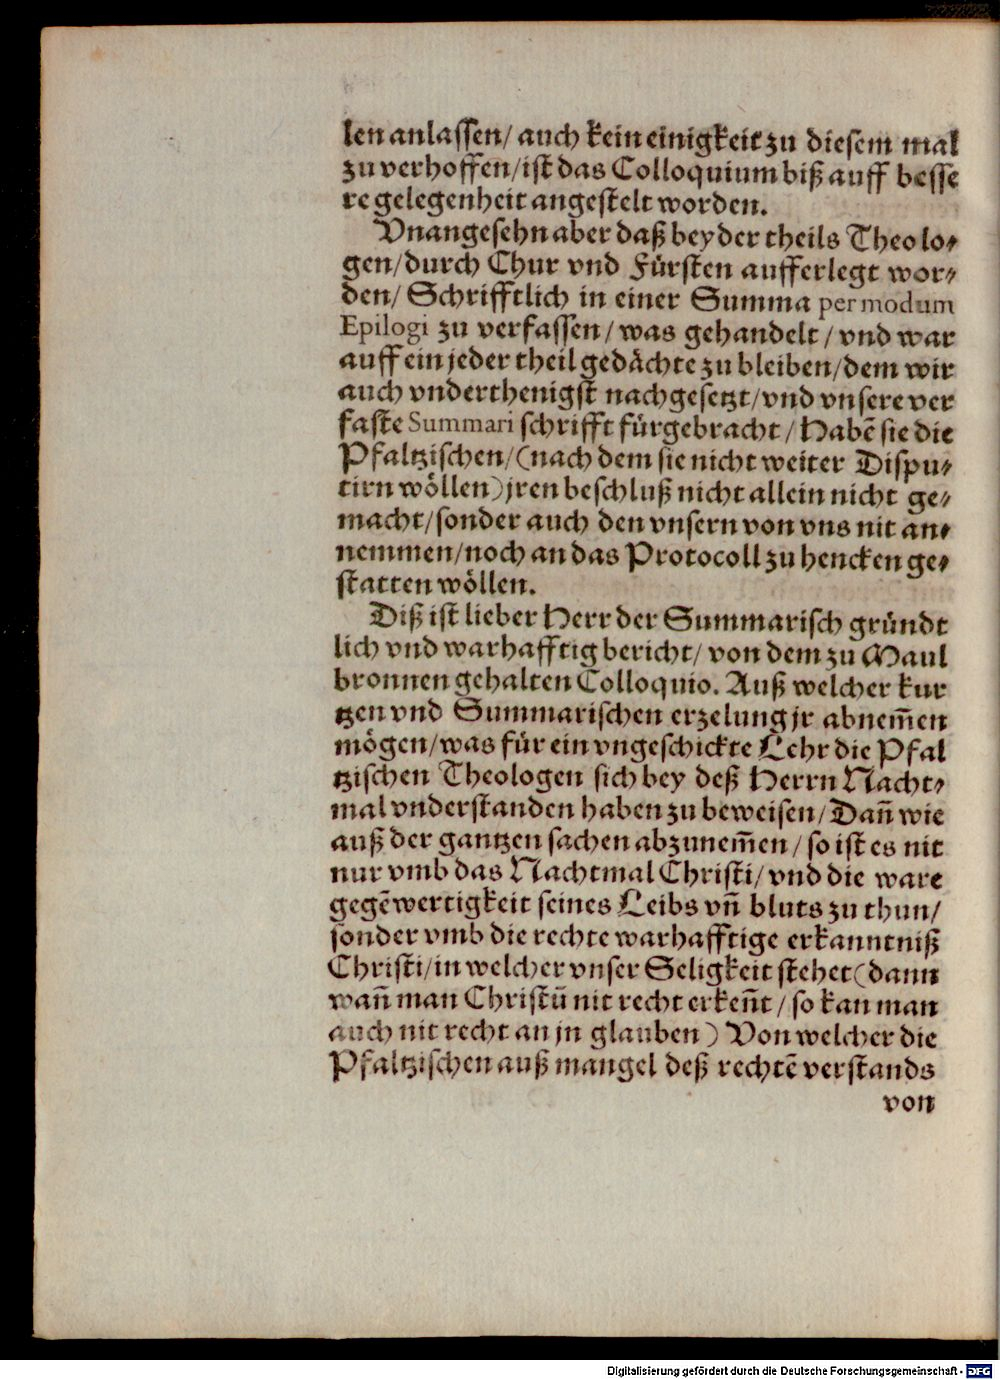 len anlassen/ auch kein einigkeit zu diesem mal
zu verhoffen/ ist das Colloquium biß auff besse
re gelegenheit angestelt worden.
Vnangesehn aber daß beyder theils Theolo⸗
gen/ durch Chur vnd Fürsten aufferlegt wor⸗
den/ Schrifftlich in einer Summa per modum
Epilogi zu verfassen/ was gehandelt/ vnd war
auff ein jeder theil gedächte zu bleiben/ dem wir
auch vnderthenigst nachgesetzt/ vnd vnsere ver
faste Summari schrifft fürgebracht/ Habẽ sie die
Pfaltzischen/ (nach dem sie nicht weiter Dispu⸗
tirn wöllen) jren beschluß nicht allein nicht ge⸗
macht/ sonder auch den vnsern von vns nit an⸗
nemmen/ noch an das Protocoll zu hencken ge⸗
statten wöllen.
Diß ist lieber Herr der Summarisch gründt
lich vnd warhafftig bericht/ von dem zu Maul
bronnen gehalten Colloquio. Auß welcher kur
tzen vnd Summarischen erzelung jr abnem̃en
mögen/ was für ein vngeschickte Lehr die Pfal
tzischen Theologen sich bey deß Herrn Nacht⸗
mal vnderstanden haben zu beweisen/ Dañ wie
auß der gantzen sachen abzunem̃en/ so ist es nit
nur vmb das Nachtmal Christi/ vnd die ware
gegẽwertigkeit seines Leibs vñ bluts zu thun/
sonder vmb die rechte warhafftige erkanntniß
Christi/ in welcher vnser Seligkeit stehet (dann
wañ man Christũ nit recht erkeñt/ so kan man
auch nit recht an jn glauben) Von welcher die
Pfaltzischen auß mangel deß rechtẽ verstands
von
Digitalisierung gefördert durch die Deutsche Forschungsgemeinschaft - DFG